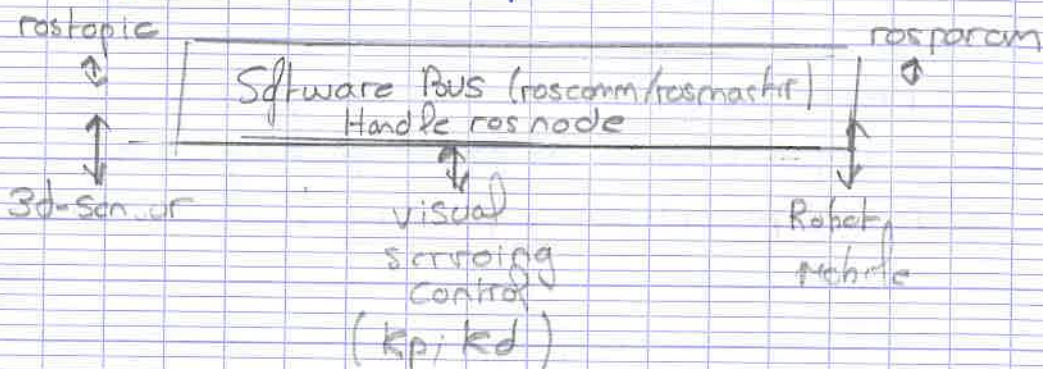 rostopic
rosparam
Software Bus (roscomm/rosmaster)
Handle rosnode
3d-sensor
visual
servoing
control
(kp; kd)
Robot
mobile